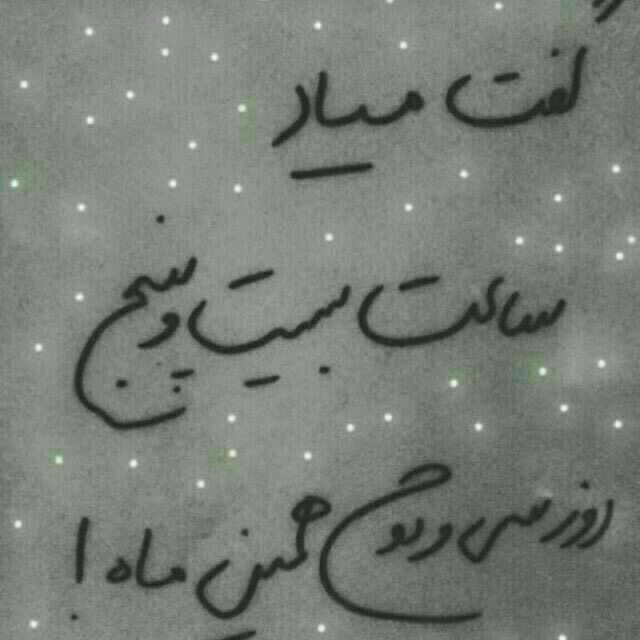 گفت میاد
ساعت بیست و پنج
روز سی و دوم همین ماه !